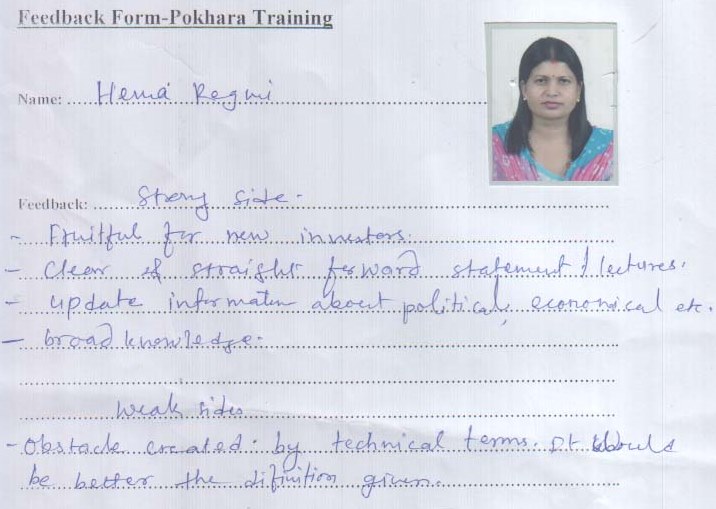 Feedback Form-Pokhara Training
Name: Hema Regmi
Feedback: Strong side.
- Fruitful for new investors.
- Clear & straight forward statement / lectures.
- update information about political, economical etc.
- broad knowledge.
Weak sides
- Obstacle created by technical terms. It would
be better the difinition given.